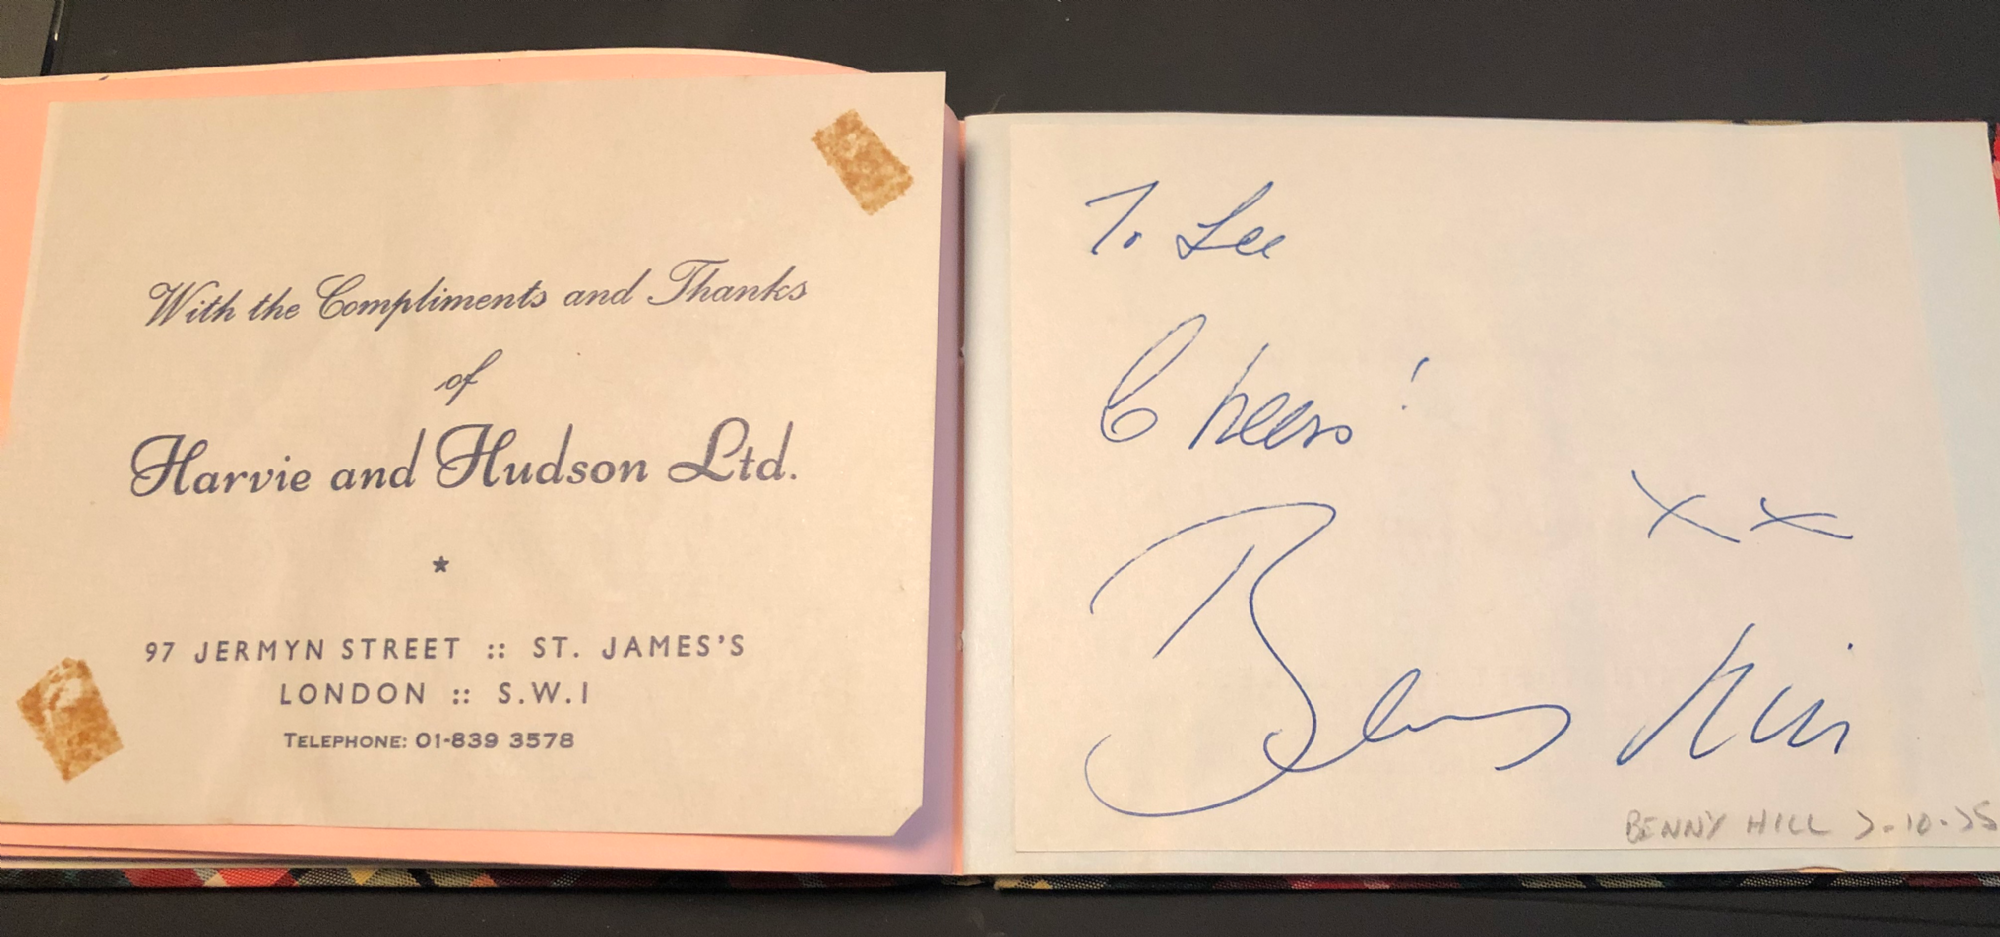 With the Compliments and Thanks
of
Harvie and Hudson Ltd.
★
97 JERMYN STREET :: ST. JAMES'S
LONDON :: S.W.1
TELEPHONE: 01-839 3578
To Lee
Cheers!
xx
Benny Hill
BENNY HILL 7-10-75